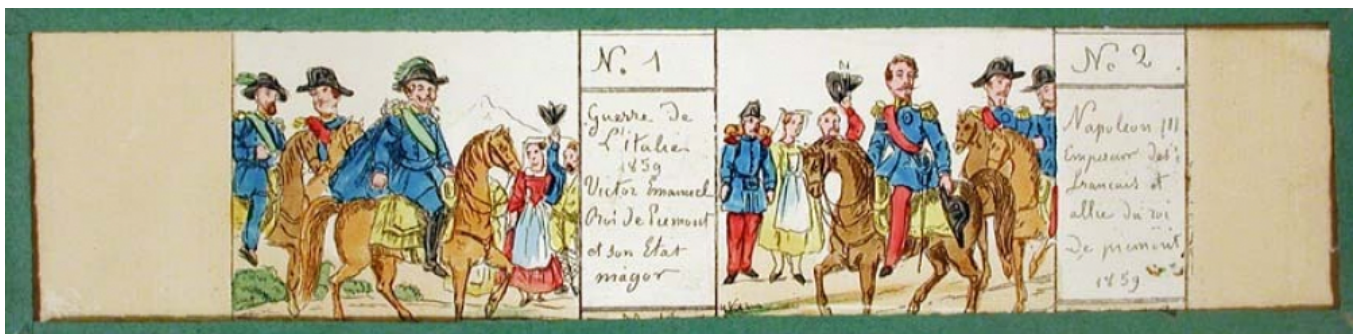 No 1
Guerre de
L'italie
1859
Victor Emanuel
Roi de Piemont
et son Etat
magor
N
No 2.
Napoleon III
Empereur des
francais et
allie du roi
De piemont
1859